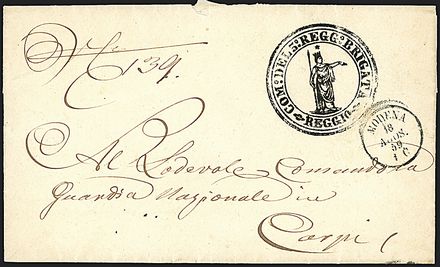 N. 139.
COM: DEL 5: REGG: BRIGATA
REGGIO
MODENA
18
AGOS.
59
Al Lodevole Comando
Guardia Nazionale in
Carpi